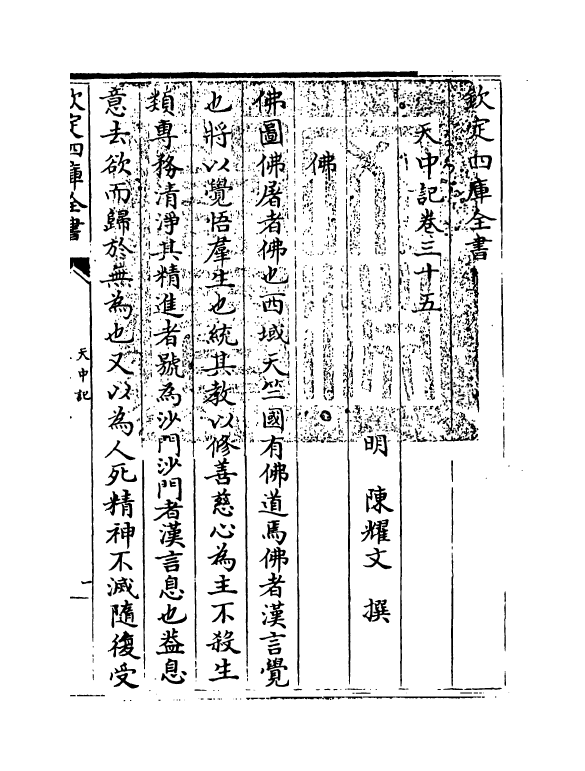 欽定四庫全書
天中記卷三十五
明 陳耀文 撰
佛
佛圖佛屠者佛也西域天竺國有佛道焉佛者漢言覺
也將以覺悟羣生也統其教以修善慈心為主不殺生
類專務清淨其精進者號為沙門沙門者漢言息也益息
意去欲而歸於無為也又以為人死精神不滅隨復受
欽定四庫全書
天中記
一